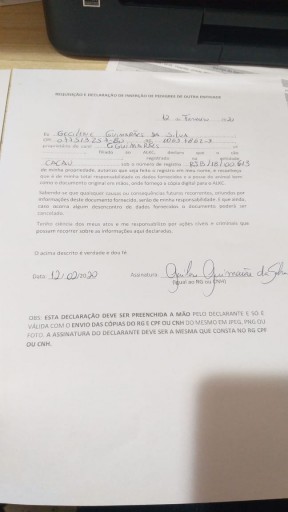 REQUISIÇÃO E DECLARAÇÃO DE INSERÇÃO DE PEDIGREE DE OUTRA ENTIDADE
Eu Guimarães da Silva
CPF
proprietário do canil
filiado ao ALKC, declaro que o cão
CACAU registrado na entidade
sob o número de registro
de minha propriedade, autorizo que seja feito o registro em meu nome, e reconheço
que é de minha total responsabilidade os dados fornecidos e a posse do animal bem
como o documento original em mãos, onde forneço a cópia digital para o ALKC.
Sabendo-se que quaisquer causas ou consequências futuras recorrentes, oriundas por
informações deste documento fornecido, serão de minha responsabilidade, e que ainda,
caso ocorra algum desencontro de dados fornecidos o documento poderá ser
cancelado.
Tenho ciência dos meus atos e me responsabilizo por ações cíveis e criminais que
possam recorrer sobre as informações aqui declaradas.
O acima descrito é verdade e dou fé
Data: 12/02/2020 Assinatura: Guimarães da Silva
(Igual ao RG ou CNH)
OBS: ESTA DECLARAÇÃO DEVE SER PREENCHIDA A MÃO PELO DECLARANTE E SÓ É
VÁLIDA COM O ENVIO DAS CÓPIAS DO RG E CPF OU CNH DO MESMO EM JPEG, PNG OU
FOTO. A ASSINATURA DO DECLARANTE DEVE SER A MESMA QUE CONSTA NO RG CPF
OU CNH.